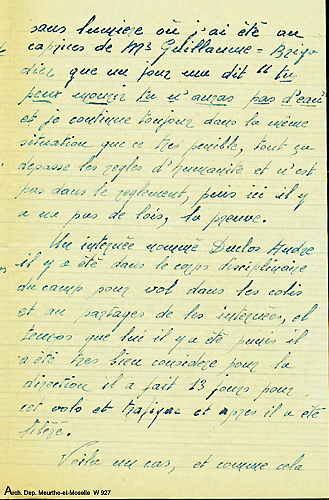 sans lumiere où j'ai été au
caprices de Mr Guillaume = Briga
dier que un jour me dit " tu
peux mourir tu n'auras pas d'eau"
et je continue toujour dans la même
situation que ce tres penible, tout ça
depasse les regles d'humanite et n'est
pas dans le reglement, puis ici il y
a un pas de lois, la preuve.
Un internée nommé Duclos Andre
il y a été dans le corps disciplinaire
du camp pour vol dans les colis
et au partages de les internees, el
temos que lui il y a été punis il
a été tres bien considere pour la
direction il a fait 13 jours pour
cet vols et trafique et apres il a été
libere.
Voila un cas, et comme cela
Arch. Dep. Meurthe-et-Moselle W 927